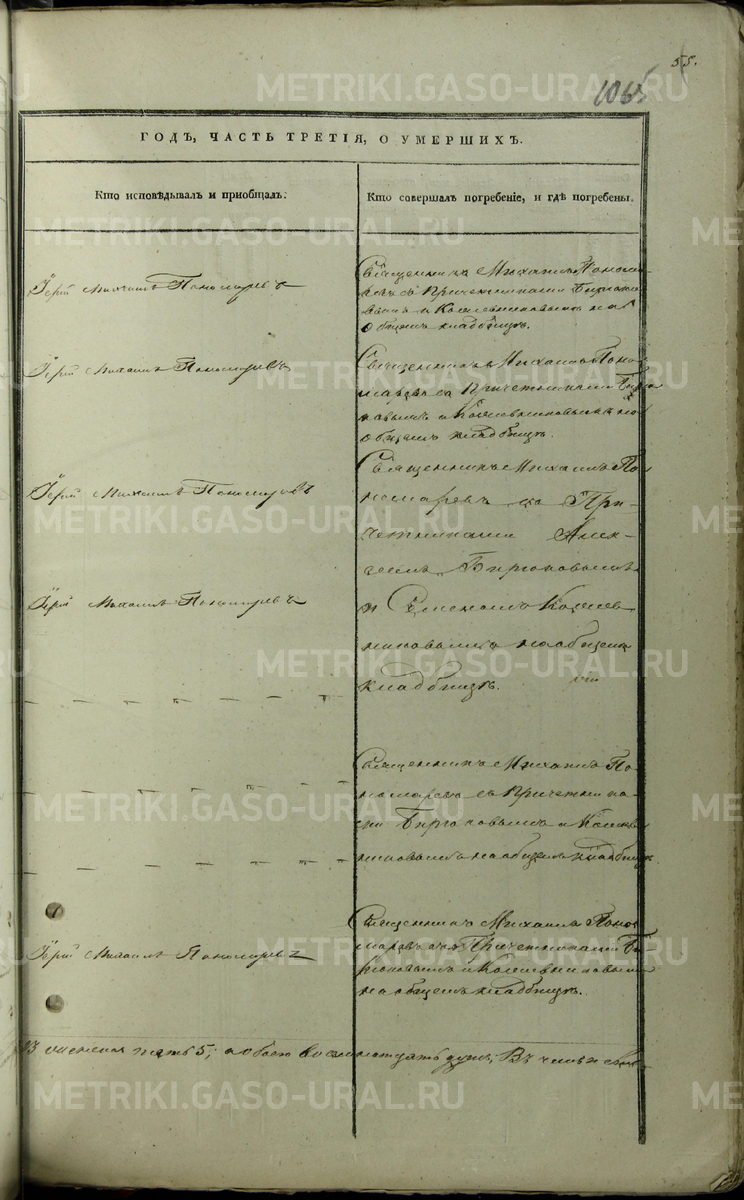 55.
1065
ГОДЪ, ЧАСТЬ ТРЕТІЯ, О УМЕРШИХЪ.
Кто исповѣдывалъ и приобщалъ:
Кто совершалъ погребеніе, и гдѣ погребены.
Іерей Михаилъ Пономаревъ
Священникъ Михаилъ Понома-
ревъ съ Причетниками Бирюко-
вымъ и Кожевниковымъ на
общемъ кладбищѣ.
Іерей Михаилъ Пономаревъ
Священникъ Михаилъ Поно-
маревъ съ Причетниками Бирю
ковымъ и Кожевниковымъ на
общемъ кладбищѣ.
Іерей Михаилъ Пономаревъ
Священникъ Михаилъ По-
номаревъ съ При-
четниками Алек-
Бирюковымъ
Іерей Михаилъ Пономаревъ
и Семеномъ Кожев
никовымъ на общемъ
кладбищѣ.
Священникъ Михаилъ По-
номаревъ съ Причетника-
ми Бирюковымъ и Кожев
никовымъ на общемъ кладбищѣ
Іерей Михаилъ Пономаревъ
Священникъ Михаилъ Поно-
маревъ съ Причетниками Би-
рюковымъ и Кожевниковымъ
на общемъ кладбищѣ.
пять 5, а обоего душъ, Въ
METRIKI.GASO-URAL.RU